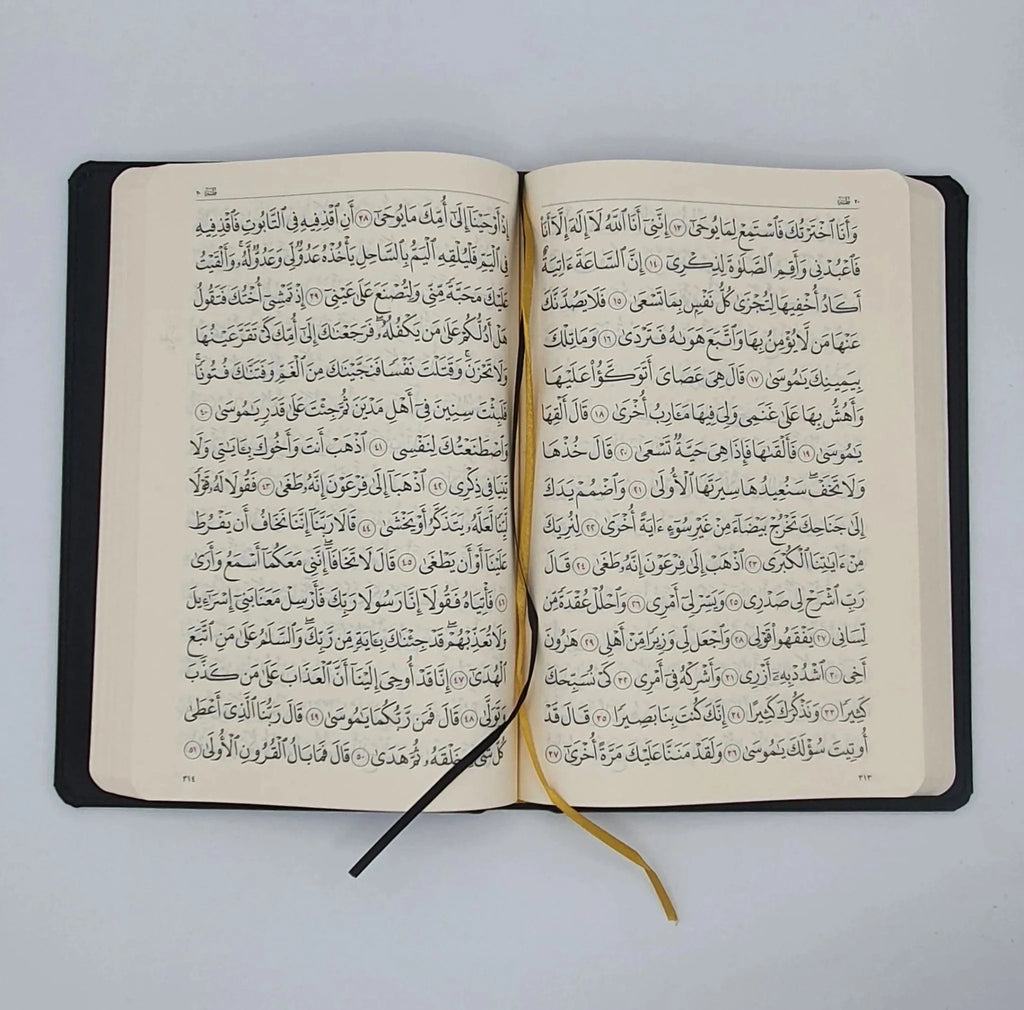 ٢٠
وَأَنَا ٱخْتَرْتُكَ فَٱسْتَمِعْ لِمَا يُوحَىٰٓ ١٣ إِنَّنِىٓ أَنَا ٱللَّهُ لَآ إِلَٰهَ إِلَّآ أَنَا۠
فَٱعْبُدْنِى وَأَقِمِ ٱلصَّلَوٰةَ لِذِكْرِىٓ ١٤ إِنَّ ٱلسَّاعَةَ ءَاتِيَةٌ
أَكَادُ أُخْفِيهَا لِتُجْزَىٰ كُلُّ نَفْسٍۭ بِمَا تَسْعَىٰ ١٥ فَلَا يَصُدَّنَّكَ
عَنْهَا مَن لَّا يُؤْمِنُ بِهَا وَٱتَّبَعَ هَوَىٰهُ فَتَرْدَىٰ ١٦ وَمَا تِلْكَ
بِيَمِينِكَ يَٰمُوسَىٰ ١٧ قَالَ هِىَ عَصَاىَ أَتَوَكَّؤُا۟ عَلَيْهَا
وَأَهُشُّ بِهَا عَلَىٰ غَنَمِى وَلِىَ فِيهَا مَـَٔارِبُ أُخْرَىٰ ١٨ قَالَ أَلْقِهَا
يَٰمُوسَىٰ ١٩ فَأَلْقَىٰهَا فَإِذَا هِىَ حَيَّةٌ تَسْعَىٰ ٢٠ قَالَ خُذْهَا
وَلَا تَخَفْ ۖ سَنُعِيدُهَا سِيرَتَهَا ٱلْأُولَىٰ ٢١ وَٱضْمُمْ يَدَكَ
إِلَىٰ جَنَاحِكَ تَخْرُجْ بَيْضَآءَ مِنْ غَيْرِ سُوٓءٍ ءَايَةً أُخْرَىٰ ٢٢ لِنُرِيَكَ
مِنْ ءَايَٰتِنَا ٱلْكُبْرَى ٢٣ ٱذْهَبْ إِلَىٰ فِرْعَوْنَ إِنَّهُۥ طَغَىٰ ٢٤ قَالَ
رَبِّ ٱشْرَحْ لِى صَدْرِى ٢٥ وَيَسِّرْ لِىٓ أَمْرِى ٢٦ وَٱحْلُلْ عُقْدَةً مِّن
لِّسَانِى ٢٧ يَفْقَهُوا۟ قَوْلِى ٢٨ وَٱجْعَل لِّى وَزِيرًا مِّنْ أَهْلِى ٢٩ هَٰرُونَ
أَخِى ٣٠ ٱشْدُدْ بِهِۦٓ أَزْرِى ٣١ وَأَشْرِكْهُ فِىٓ أَمْرِى ٣٢ كَىْ نُسَبِّحَكَ
كَثِيرًا ٣٣ وَنَذْكُرَكَ كَثِيرًا ٣٤ إِنَّكَ كُنتَ بِنَا بَصِيرًا ٣٥ قَالَ قَدْ
أُوتِيتَ سُؤْلَكَ يَٰمُوسَىٰ ٣٦ وَلَقَدْ مَنَنَّا عَلَيْكَ مَرَّةً أُخْرَىٰٓ ٣٧
٣١٣
٢٠
إِذْ أَوْحَيْنَآ إِلَىٰٓ أُمِّكَ مَا يُوحَىٰٓ ٣٨ أَنِ ٱقْذِفِيهِ فِى ٱلتَّابُوتِ فَٱقْذِفِيهِ
فِى ٱلْيَمِّ فَلْيُلْقِهِ ٱلْيَمُّ بِٱلسَّاحِلِ يَأْخُذْهُ عَدُوٌّ لِّى وَعَدُوٌّ لَّهُۥ ۚ وَأَلْقَيْتُ
عَلَيْكَ مَحَبَّةً مِّنِّى وَلِتُصْنَعَ عَلَىٰ عَيْنِىٓ ٣٩ إِذْ تَمْشِىٓ أُخْتُكَ فَتَقُولُ
هَلْ أَدُلُّكُمْ عَلَىٰ مَن يَكْفُلُهُۥ ۖ فَرَجَعْنَٰكَ إِلَىٰٓ أُمِّكَ كَىْ تَقَرَّ عَيْنُهَا
وَلَا تَحْزَنَ ۚ وَقَتَلْتَ نَفْسًا فَنَجَّيْنَٰكَ مِنَ ٱلْغَمِّ وَفَتَنَّٰكَ فُتُونًا ۚ
فَلَبِثْتَ سِنِينَ فِىٓ أَهْلِ مَدْيَنَ ثُمَّ جِئْتَ عَلَىٰ قَدَرٍ يَٰمُوسَىٰ ٤٠
وَٱصْطَنَعْتُكَ لِنَفْسِى ٤١ ٱذْهَبْ أَنتَ وَأَخُوكَ بِـَٔايَٰتِى وَلَا
تَنِيَا فِى ذِكْرِى ٤٢ ٱذْهَبَآ إِلَىٰ فِرْعَوْنَ إِنَّهُۥ طَغَىٰ ٤٣ فَقُولَا لَهُۥ قَوْلًا
لَّيِّنًا لَّعَلَّهُۥ يَتَذَكَّرُ أَوْ يَخْشَىٰ ٤٤ قَالَا رَبَّنَآ إِنَّنَا نَخَافُ أَن يَفْرُطَ
عَلَيْنَآ أَوْ أَن يَطْغَىٰ ٤٥ قَالَ لَا تَخَافَآ ۖ إِنَّنِى مَعَكُمَآ أَسْمَعُ وَأَرَىٰ
٤٦ فَأْتِيَاهُ فَقُولَآ إِنَّا رَسُولَا رَبِّكَ فَأَرْسِلْ مَعَنَا بَنِىٓ إِسْرَٰٓءِيلَ
وَلَا تُعَذِّبْهُمْ ۖ قَدْ جِئْنَٰكَ بِـَٔايَةٍ مِّن رَّبِّكَ ۖ وَٱلسَّلَٰمُ عَلَىٰ مَنِ ٱتَّبَعَ
ٱلْهُدَىٰٓ ٤٧ إِنَّا قَدْ أُوحِىَ إِلَيْنَآ أَنَّ ٱلْعَذَابَ عَلَىٰ مَن كَذَّبَ
وَتَوَلَّىٰ ٤٨ قَالَ فَمَن رَّبُّكُمَا يَٰمُوسَىٰ ٤٩ قَالَ رَبُّنَا ٱلَّذِىٓ أَعْطَىٰ
كُلَّ شَىْءٍ خَلْقَهُۥ ثُمَّ هَدَىٰ ٥٠ قَالَ فَمَا بَالُ ٱلْقُرُونِ ٱلْأُولَىٰ ٥١
٣١٤